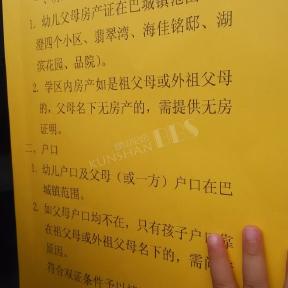 1. 幼儿父母房产证在巴城镇范围
澄四个小区、翡翠湾、海佳铭邸、湖
滨花园、品院)。
2. 学区内房产如是祖父母或外祖父母
的,父母名下无房产的,需提供无房
证明。
二、户口
1. 幼儿户口及父母(或一方)户口在巴
城镇范围。
2. 如父母户口均不在,只有孩子户口靠
在祖父母或外祖父母名下的,需
原因。
符合双证条件予以
KUNSHAN BBS